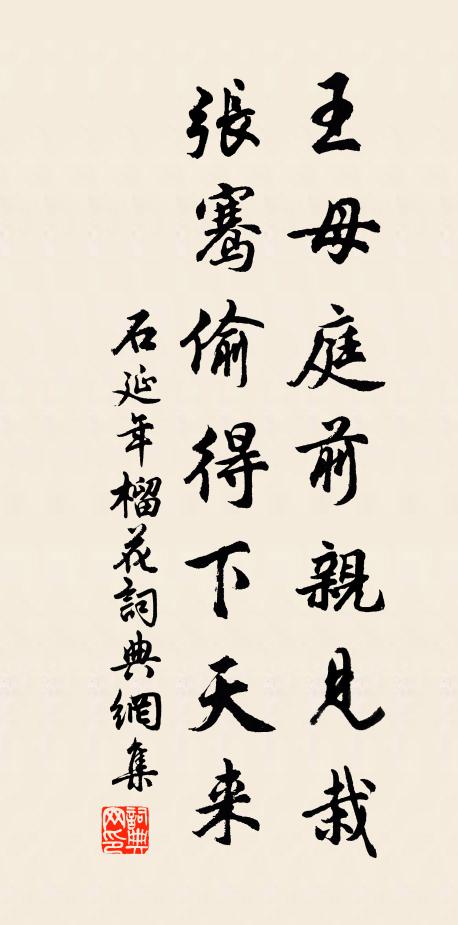 王母庭前親見栽
張騫偷得下天来
石延年榴花詞典網集
詞典网印